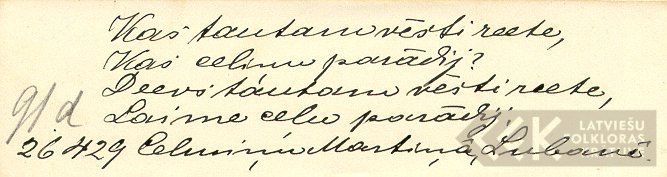 Kas tautam vēsti nete,
Kas celiņu parādij?
Deevs tautam vēsti nete,
Laime celu parādij.
9/d
26429 Celmiņu Martiņa, Lubanē.
LATVIEŠU
FOLKLORAS